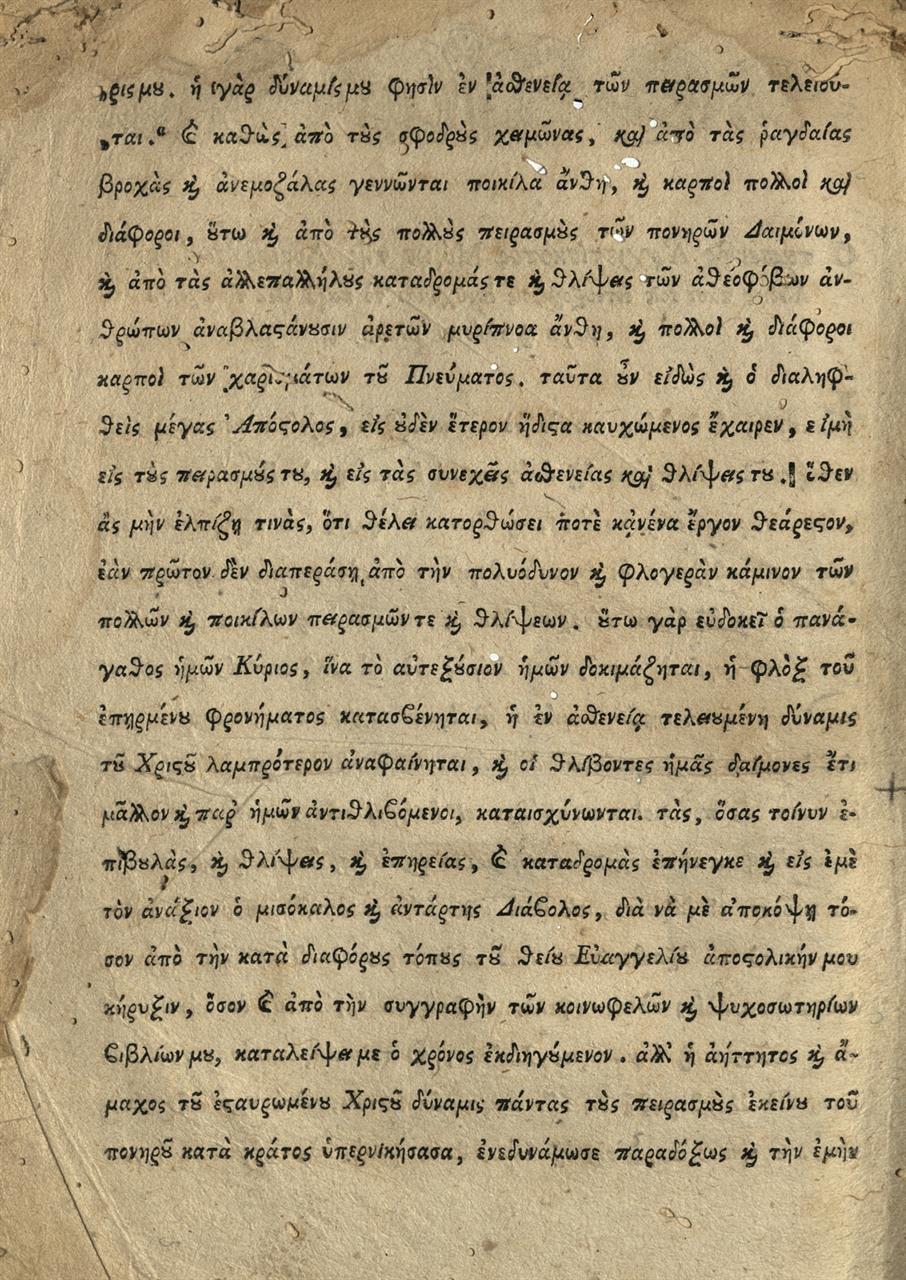 „ρις μȣ. ἡ γὰρ δύναμίς μȣ φησὶν ἐν ἀσθενείᾳ τῶν πειρασμῶν τελειοῦ-
„ται.“ Ȼ καθὼς ἀπὸ τȣ̀ς σφοδρȣ̀ς χειμῶνας, καὶ ἀπὸ τὰς ῥαγδαίας
βροχὰς ϗ ἀνεμοζάλας γεννῶνται ποικίλα ἄνθη, ϗ καρποὶ πολλοὶ καὶ
διάφοροι, ȣ̔́τω ϗ ἀπὸ τȣ̀ς πολλȣ̀ς πειρασμȣ̀ς τῶν πονηρῶν Δαιμόνων,
ϗ ἀπὸ τὰς ἀλλεπαλλήλȣς καταδρομάς τε ϗ θλίψεις τῶν ἀθεοφόβων ἀν-
θρώπων ἀναβλαϛάνȣσιν ἀρετῶν μυρίπνοα ἄνθη, ϗ πολλοὶ ϗ διάφοροι
καρποὶ τῶν χαρισμάτων τȣ͂ Πνεύματος. ταῦτα ȣ̓͂ν εἰδὼς ϗ ὁ διαληφ-
θεὶς μέγας Ἀπόϛολος, εἰς ȣ̓δὲν ἕτερον ἥδιϛα καυχώμενος ἔχαιρεν, εἰμὴ
εἰς τȣ̀ς πειρασμȣ́ς τȣ, ϗ εἰς τὰς συνεχεῖς ἀσθενείας καὶ θλίψεις τȣ. ὅθεν
ἂς μὴν ἐλπίζῃ τινὰς, ὅτι θέλει κατορθώσει ποτὲ κᾀνένα ἔργον θεάρεϛον,
ἐὰν πρῶτον δὲν διαπεράσῃ ἀπὸ τὴν πολυόδυνον ϗ φλογερὰν κάμινον τῶν
πολλῶν ϗ ποικίλων πειρασμῶν τε ϗ θλίψεων. ȣ̔́τω γὰρ εὐδοκεῖ ὁ πανά-
γαθος ἡμῶν Κύριος, ἵνα τὸ αὐτεξȣ́σιον ἡμῶν δοκιμάζηται, ἡ φλὸξ τοῦ
ἐπῃρμένȣ φρονήματος κατασϐένηται, ἡ ἐν ἀσθενείᾳ τελειȣμένη δύναμις
τȣ͂ Χριϛȣ͂ λαμπρότερον ἀναφαίνηται, ϗ οἱ θλίβοντες ἡμᾶς δαίμονες ἔτι
μᾶλλον ϗ παρ᾽ ἡμῶν ἀντιθλιϐόμενοι, καταισχύνωνται. τὰς, ὅσας τοίνυν ἐ-
πιβȣλὰς, ϗ θλίψεις, ϗ ἐπηρείας, Ȼ καταδρομὰς ἐπήνεγκε ϗ εἰς ἐμὲ
τὸν ἀνάξιον ὁ μισόκαλος ϗ ἀντάρτης Διάϐολος, διὰ νὰ μὲ ἀποκόψῃ τό-
σον ἀπὸ τὴν κατὰ διαφόρȣς τόπȣς τȣ͂ θείȣ Εὐαγγελίȣ ἀποϛολικήν μου
κήρυξιν, ὅσον Ȼ ἀπὸ τὴν συγγραφὴν τῶν κοινωφελῶν ϗ ψυχοσωτηρίων
ϐιβλίων μȣ, καταλείψει με ὁ χρόνος ἐκδιηγȣ́μενον. ἀλλ᾽ ἡ ἀήττητος ϗ ἄ-
μαχος τȣ͂ ἐϛαυρωμένȣ Χριϛȣ͂ δύναμις πάντας τȣ̀ς πειρασμȣ̀ς ἐκείνȣ τοῦ
πονηρȣ͂ κατὰ κράτος ὑπερνικήσασα, ἐνεδυνάμωσε παραδόξως ϗ τὴν ἐμὴν